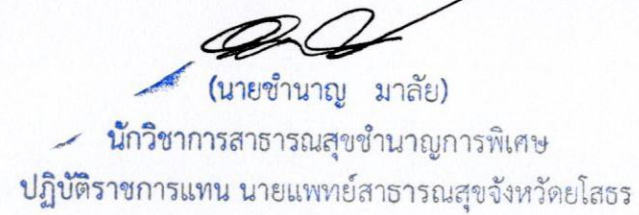 (นายชำนาญ มาลัย)
นักวิชาการสาธารณสุขชำนาญการพิเศษ
ปฏิบัติราชการแทน นายแพทย์สาธารณสุขจังหวัดยโสธร